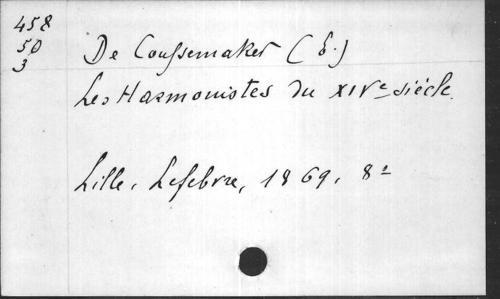 458
50
3
De Coussemaker (E.)
Les Harmonistes du XIVe siècle.
Lille, Lefebvre, 1869, 8º